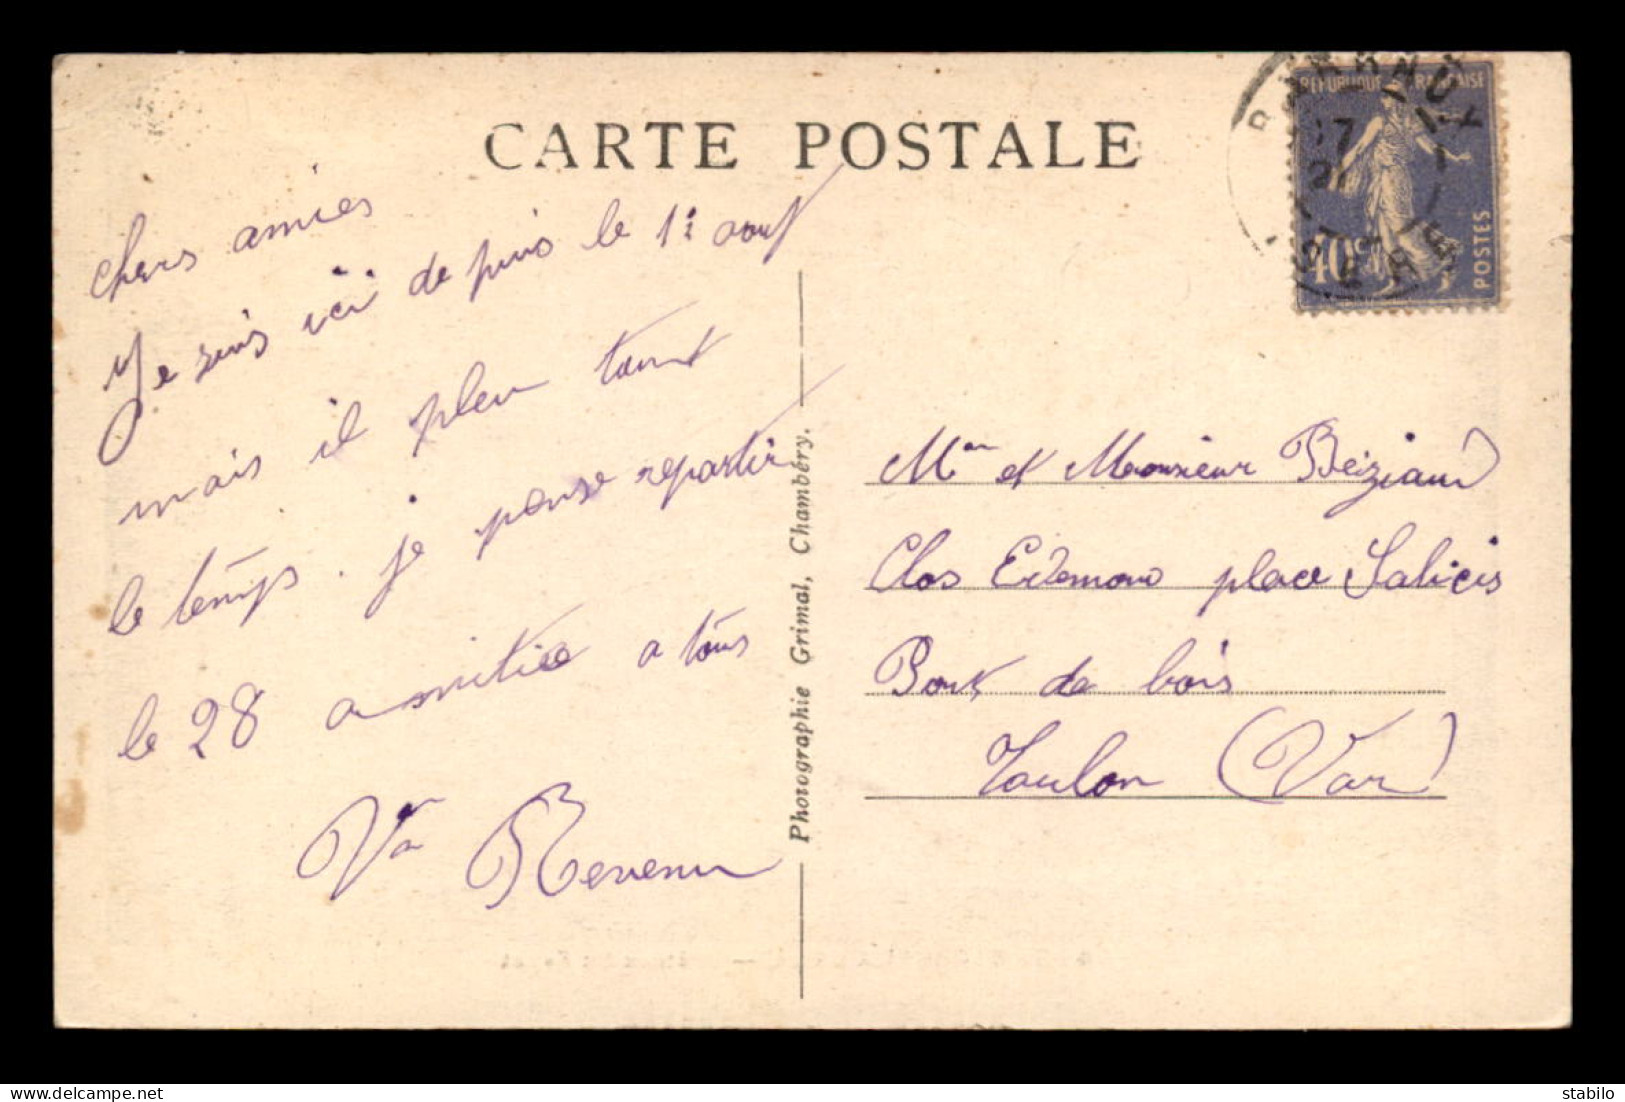 CARTE POSTALE
chers amies
Je suis ici depuis le 1i aout
mais il pleu tout
le temps. je pense repartir
le 28 amitiee a tous
Vn Revenu
Photographie Grimal, Chambéry.
RÉPUBLIQUE FRANÇAISE
40c
POSTES
Mme et Monsieur Beiziaud
Clos Edemond place Salicis
Pont de bois
Toulon (Var)
stabilo
delcampe.net